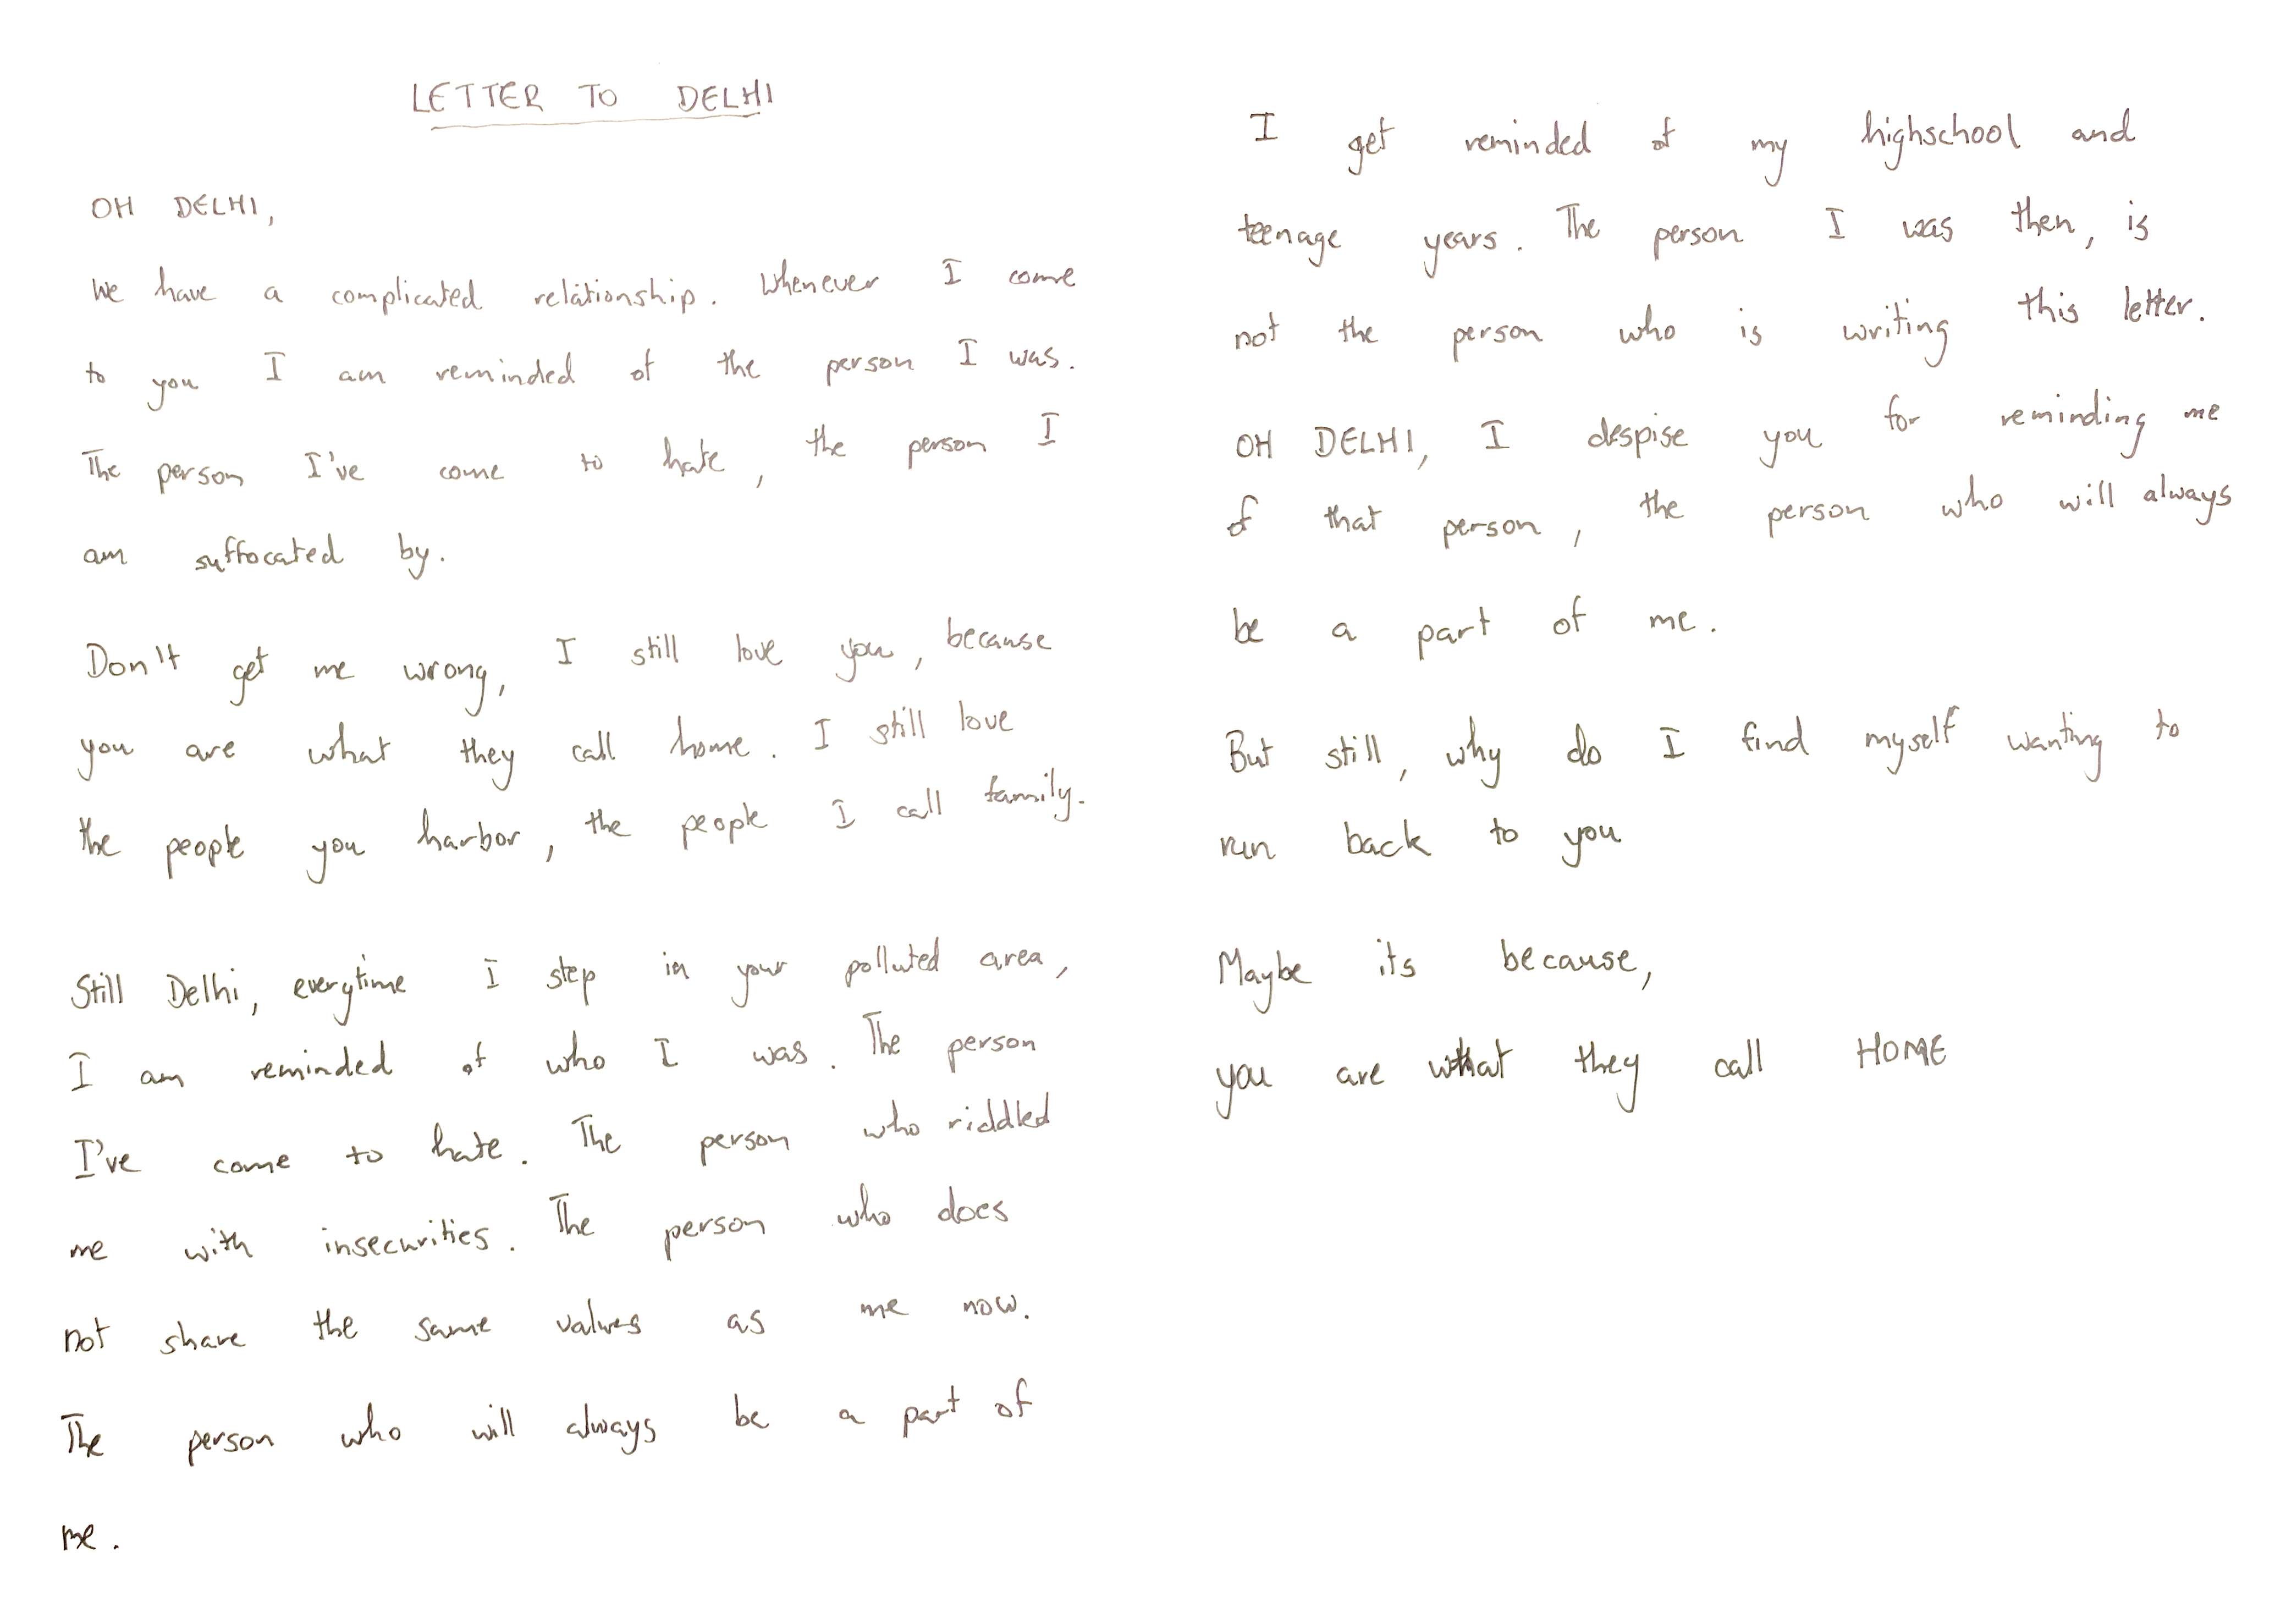 LETTER TO DELHI
OH DELHI,
We have a complicated relationship. Whenever I come
to you I am reminded of the person I was.
The person I've come to hate, the person I
am suffocated by.
Don't get me wrong, I still love you, because
you are what they call home. I still love
the people you harbor, the people I call family.
Still Delhi, everytime I step in your polluted area,
I am reminded of who I was. The person
I've come to hate. The person who riddled
me with insecurities. The person who does
not share the same values as me now.
The person who will always be a part of
me.
I get reminded of my highschool and
teenage years. The person I was then, is
not the person who is writing this letter.
OH DELHI, I despise you for reminding me
of that person, the person who will always
be a part of me.
But still, why do I find myself wanting to
run back to you
Maybe its because,
you are what they call HOME